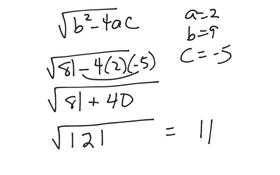 √(b² - 4ac)
a = 2
b = 9
c = -5
√(81 - 4(2)(-5))
√(81 + 40)
√121 = 11